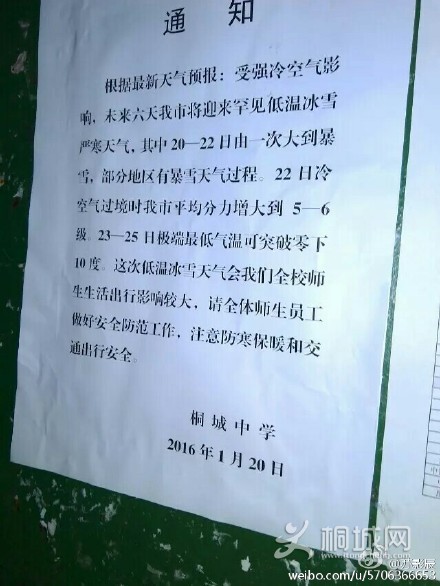 通 知
根据最新天气预报：受强冷空气影
响，未来六天我市将迎来罕见低温冰雪
严寒天气，其中20—22日由一次大到暴
雪，部分地区有暴雪天气过程。22日冷
空气过境时我市平均分力增大到 5—6
级。23—25日极端最低气温可突破零下
10度。这次低温冰雪天气会我们全校师
生生活出行影响较大，请全体师生员工
做好安全防范工作，注意防寒保暖和交
通出行安全。
桐城中学
2016年1月20日
桐城网
weibo.com/u/5706366653